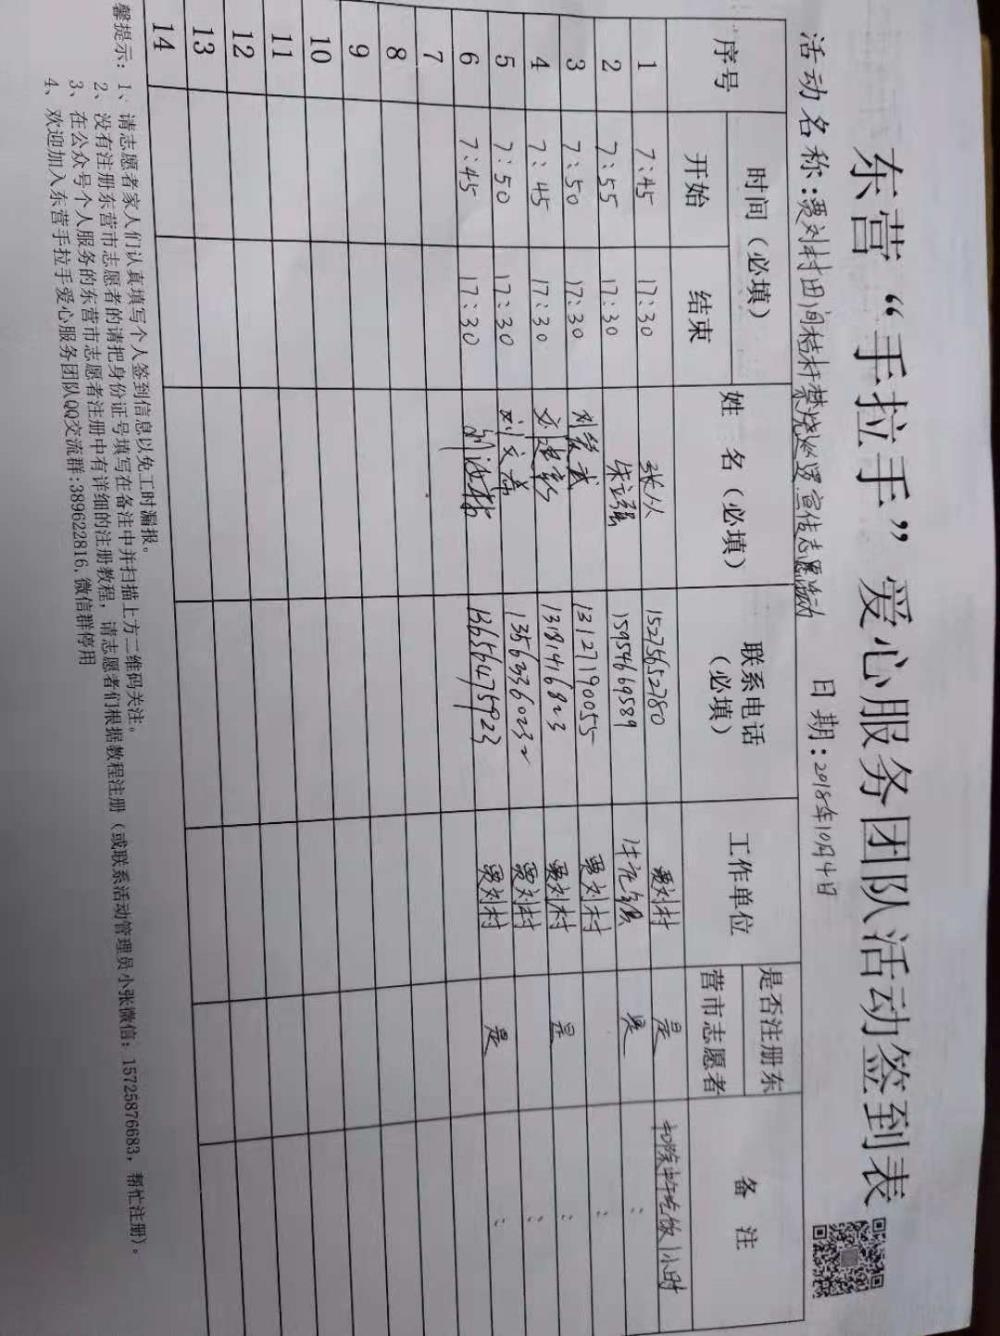 东营“手拉手”爱心服务团队活动签到表
活动名称:贾刘村田间秸秆禁烧巡逻宣传志愿活动 日期:2018年10月4日
序号 时间(必填) 姓名(必填) 联系电话(必填) 工作单位 是否注册东营市志愿者 备注
开始 结束
1 7:45 17:30 张人 15275652780 贾刘村 是 扣除中午吃饭1小时
2 7:55 17:30 朱立强 15954669589 是 :
3 7:50 17:30 13127190055 贾刘村 :
4 7:45 17:30 13181416823 贾刘村 是 :
5 7:50 17:30 贾刘村 :
6 7:45 17:30 13656475923 贾刘村 是 :
7
8
9
10
11
12
13
14
馨提示:1、请志愿者家人们认真填写个人签到信息以免工时漏报。
2、没有注册东营市志愿者的请把身份证号填写在备注中并扫描上方二维码关注。
3、在公众号个人服务的东营市志愿者注册中有详细的注册教程,请志愿者们根据教程注册(或联系活动管理员小张微信:15725876683,帮忙注册)。
4、欢迎加入东营手拉手爱心服务团队QQ交流群:389622816,微信群停用